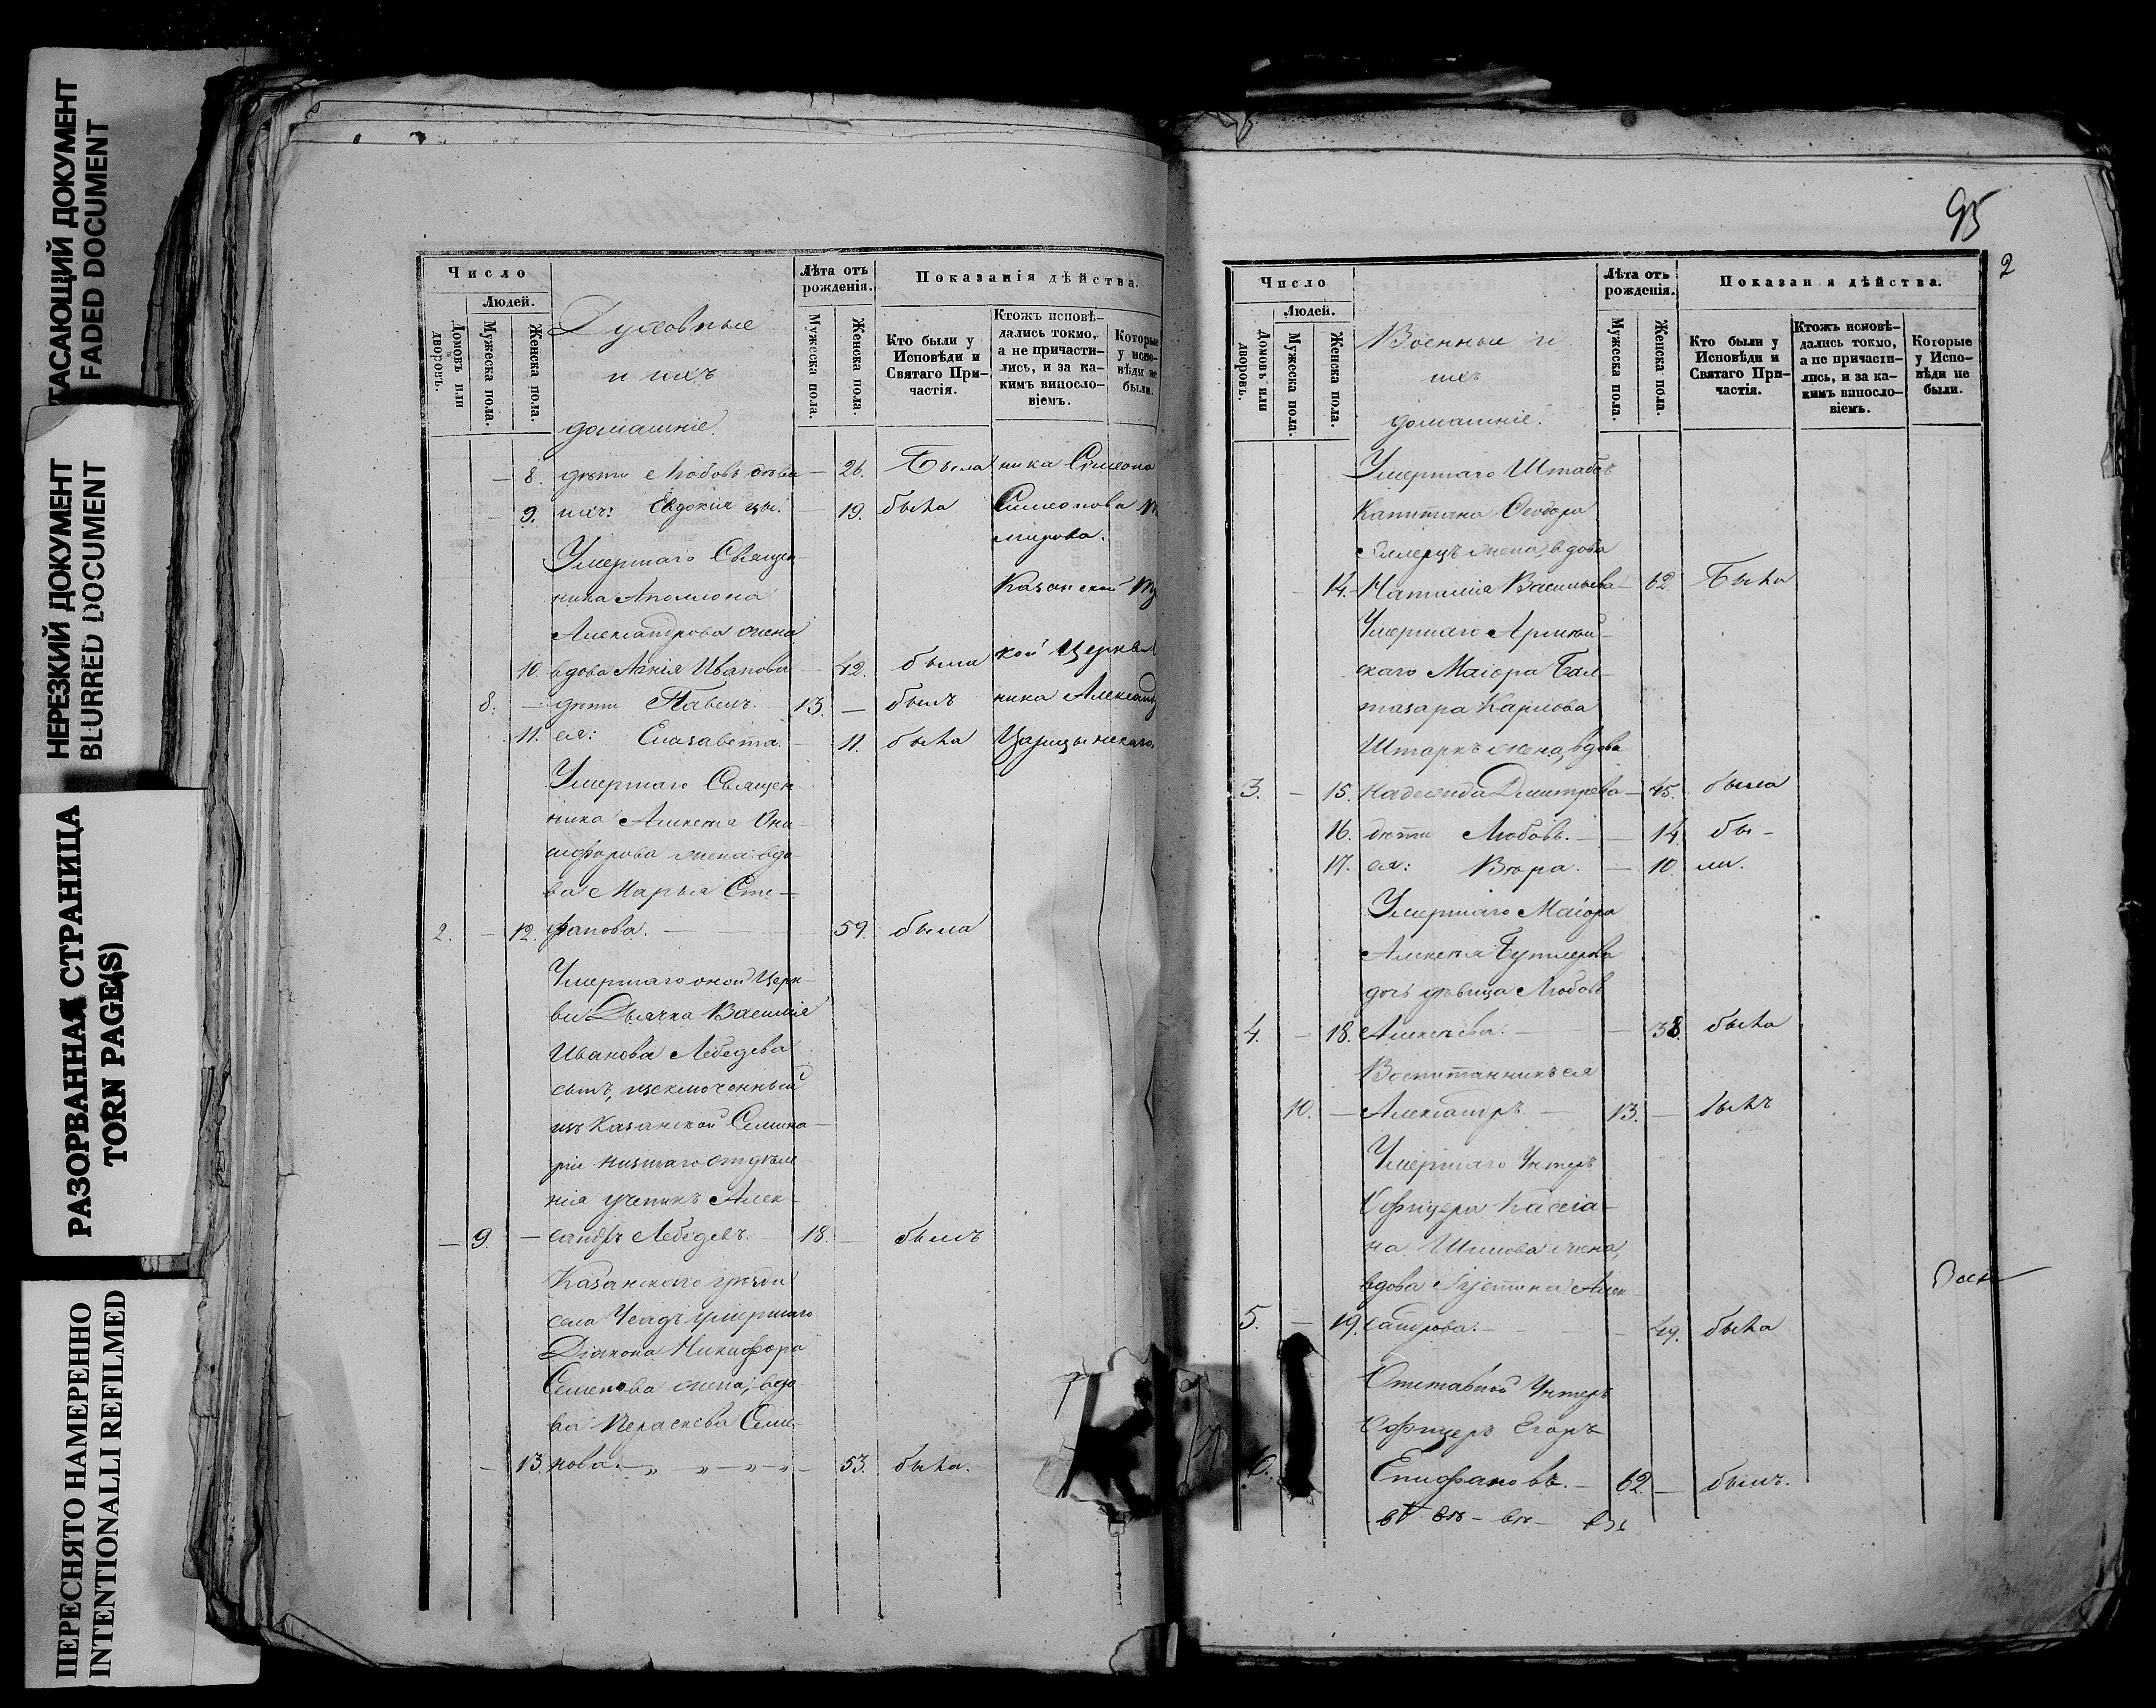 ГАСАЮЩИЙ ДОКУМЕНТ
FADED DOCUMENT
НЕРЕЗКИЙ ДОКУМЕНТ
BLURRED DOCUMENT
РАЗОРВАННАЯ СТРАНИЦА
TORN PAGE(S)
ПЕРЕСНЯТО НАМЕРЕННО
INTENTIONALLI REFILMED
Число
Людей.
Домовъ или дворовъ.
Мужеска пола.
Женска пола.
Духовные
и ихъ
домашніе.
Лѣта отъ рожденія.
Мужеска пола.
Женска пола.
Показанія дѣйства.
Кто были у Исповѣди и Святаго Причастія.
Ктожъ исповѣдались токмо, а не причастились, и за какимъ винословіемъ.
Которые у исповѣди не были.
8. дѣти Любовь дѣви 26. Была ника Симеона
9. ихъ: Евдокія цы. 19. была Симеонова
мирова.
Умершаго Священ
ника Аполлона Казанской
Александрова жена
10. вдова Анія Иванова 42. была кой Церкви
8. дѣти Павелъ. 13. былъ ника Александ
11. ея: Елизавета. 11. была Царицынскаго
Умершаго Священ
ника Алексѣя Они
сифорова жена вдо
ва Марья Сте
2. 12. фанова. 59. была
Умершаго оной Церк
ви Дьячка Василія
Иванова Лебедева
сынъ, исключенный
изъ Казанской Семина
ріи низшаго отдѣле
нія ученикъ Алек
9. сандръ Лебедевъ. 18. былъ
Казанскаго уѣзда
села умершаго
Діакона Никифора
Семенова жена, вдо
ва Параскева Семе
13. нова. 53. была.
95
2
Число
Людей.
Домовъ или дворовъ.
Мужеска пола.
Женска пола.
Военные и
ихъ
домашніе.
Лѣта отъ рожденія.
Мужеска пола.
Женска пола.
Показан я дѣйства.
Кто были у Исповѣди и Святаго Причастія.
Ктожъ исповѣдались токмо, а не причастились, и за какимъ винословіемъ.
Которые у Исповѣди не были.
Умершаго Штабсъ
Капитана Ѳеодора
жена, вдова
14. Наталія Васильева 62. Была
Умершаго Армей
скаго Маіора Бал
тазара Карлова
Штаркъ жена, вдова
3. 15. Надежда Дмитрева 45. была
16. дѣти Любовь. 14. бы-
17. ея: Вѣра. 10. ли.
Умершаго Маіора
Алексѣя Бутлерова
дочь дѣвица Любовь
4. 18. Алексѣева. 38. была
Воспитанникъ ея
10. Александръ. 13. былъ
Умершаго Унтеръ
Офицера Кассіа
на Шилова жена,
вдова Алек
5. 19. сандрова. 49. была
Отставной Унтеръ
Офицеръ Егоръ
6. Епифановъ. 62. былъ.